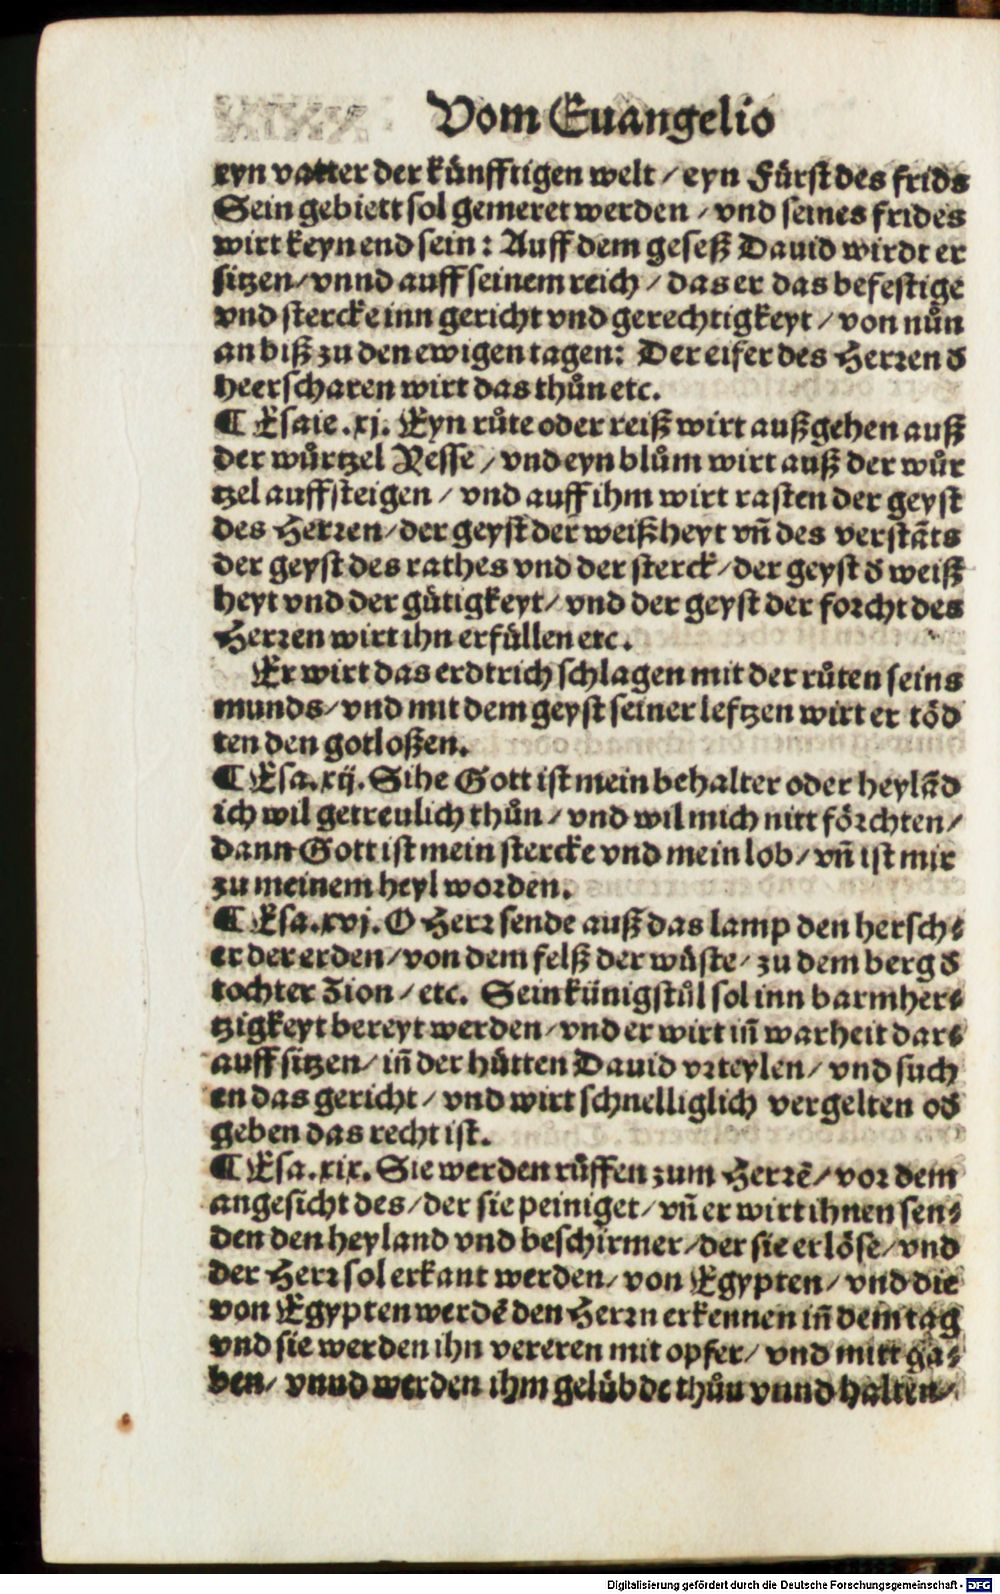 Vom Euangelio
eyn vatter der künfftigen welt / eyn Fürst des frids
Sein gebiett sol gemeret werden / vnd seines frides
wirt keyn end sein: Auff dem geseß Dauid wirdt er
sitzen / vnnd auff seinem reich / das er das befestige
vnd stercke inn gericht vnd gerechtigkeyt / von nůn
an biß zu den ewigen tagen: Der eifer des Herren d̕
heerscharen wirt das thůn etc.
¶ Esaie .xj. Eyn růte oder reiß wirt außgehen auß
der würtzel Yesse / vnd eyn blům wirt auß der wůr
tzel auffsteigen / vnd auff ihm wirt rasten der geyst
des Herren / der geyst der weißheyt vñ des verstãts
der geyst des rathes vnd der sterck / der geyst d̕ weiß
heyt vnd der gütigkeyt / vnd der geyst der forcht des
Herren wirt ihn erfüllen etc.
Er wirt das erdtrich schlagen mit der růten seins
munds / vnd mit dem geyst seiner leftzen wirt er töd
ten den gotloßen.
¶ Esa.xij. Sihe Gott ist mein behalter oder heylãd
ich wil getreulich thůn / vnd wil mich nitt förchten /
dann Gott ist mein stercke vnd mein lob / vñ ist mir
zu meinem heyl worden.
¶ Esa.xvj. O Herr sende auß das lamp den hersch⸗
er der erden / von dem felß der wüste / zu dem berg d̕
tochter Zion / etc. Sein künigstůl sol inn barmher⸗
tzigkeyt bereyt werden / vnd er wirt iñ warheit dar⸗
auff sitzen / iñ der hütten Dauid vrteylen / vnd such
en das gericht / vnd wirt schnelliglich vergelten od̕
geben das recht ist.
¶ Esa.xix. Sie werden rüffen zum Herrẽ / vor dem
angesicht des / der sie peiniget / vñ er wirt ihnen sen⸗
den den heyland vnd beschirmer / der sie erlöse / vnd
der Herr sol erkant werden / von Egypten / vnd die
von Egypten werdẽ den Herrn erkennen iñ dem tag
vnd sie werden ihn vereren mit opfer / vnd mitt ga⸗
ben / vnnd werden ihm gelübde thůn vnnd halten /
Digitalisierung gefördert durch die Deutsche Forschungsgemeinschaft - DFG